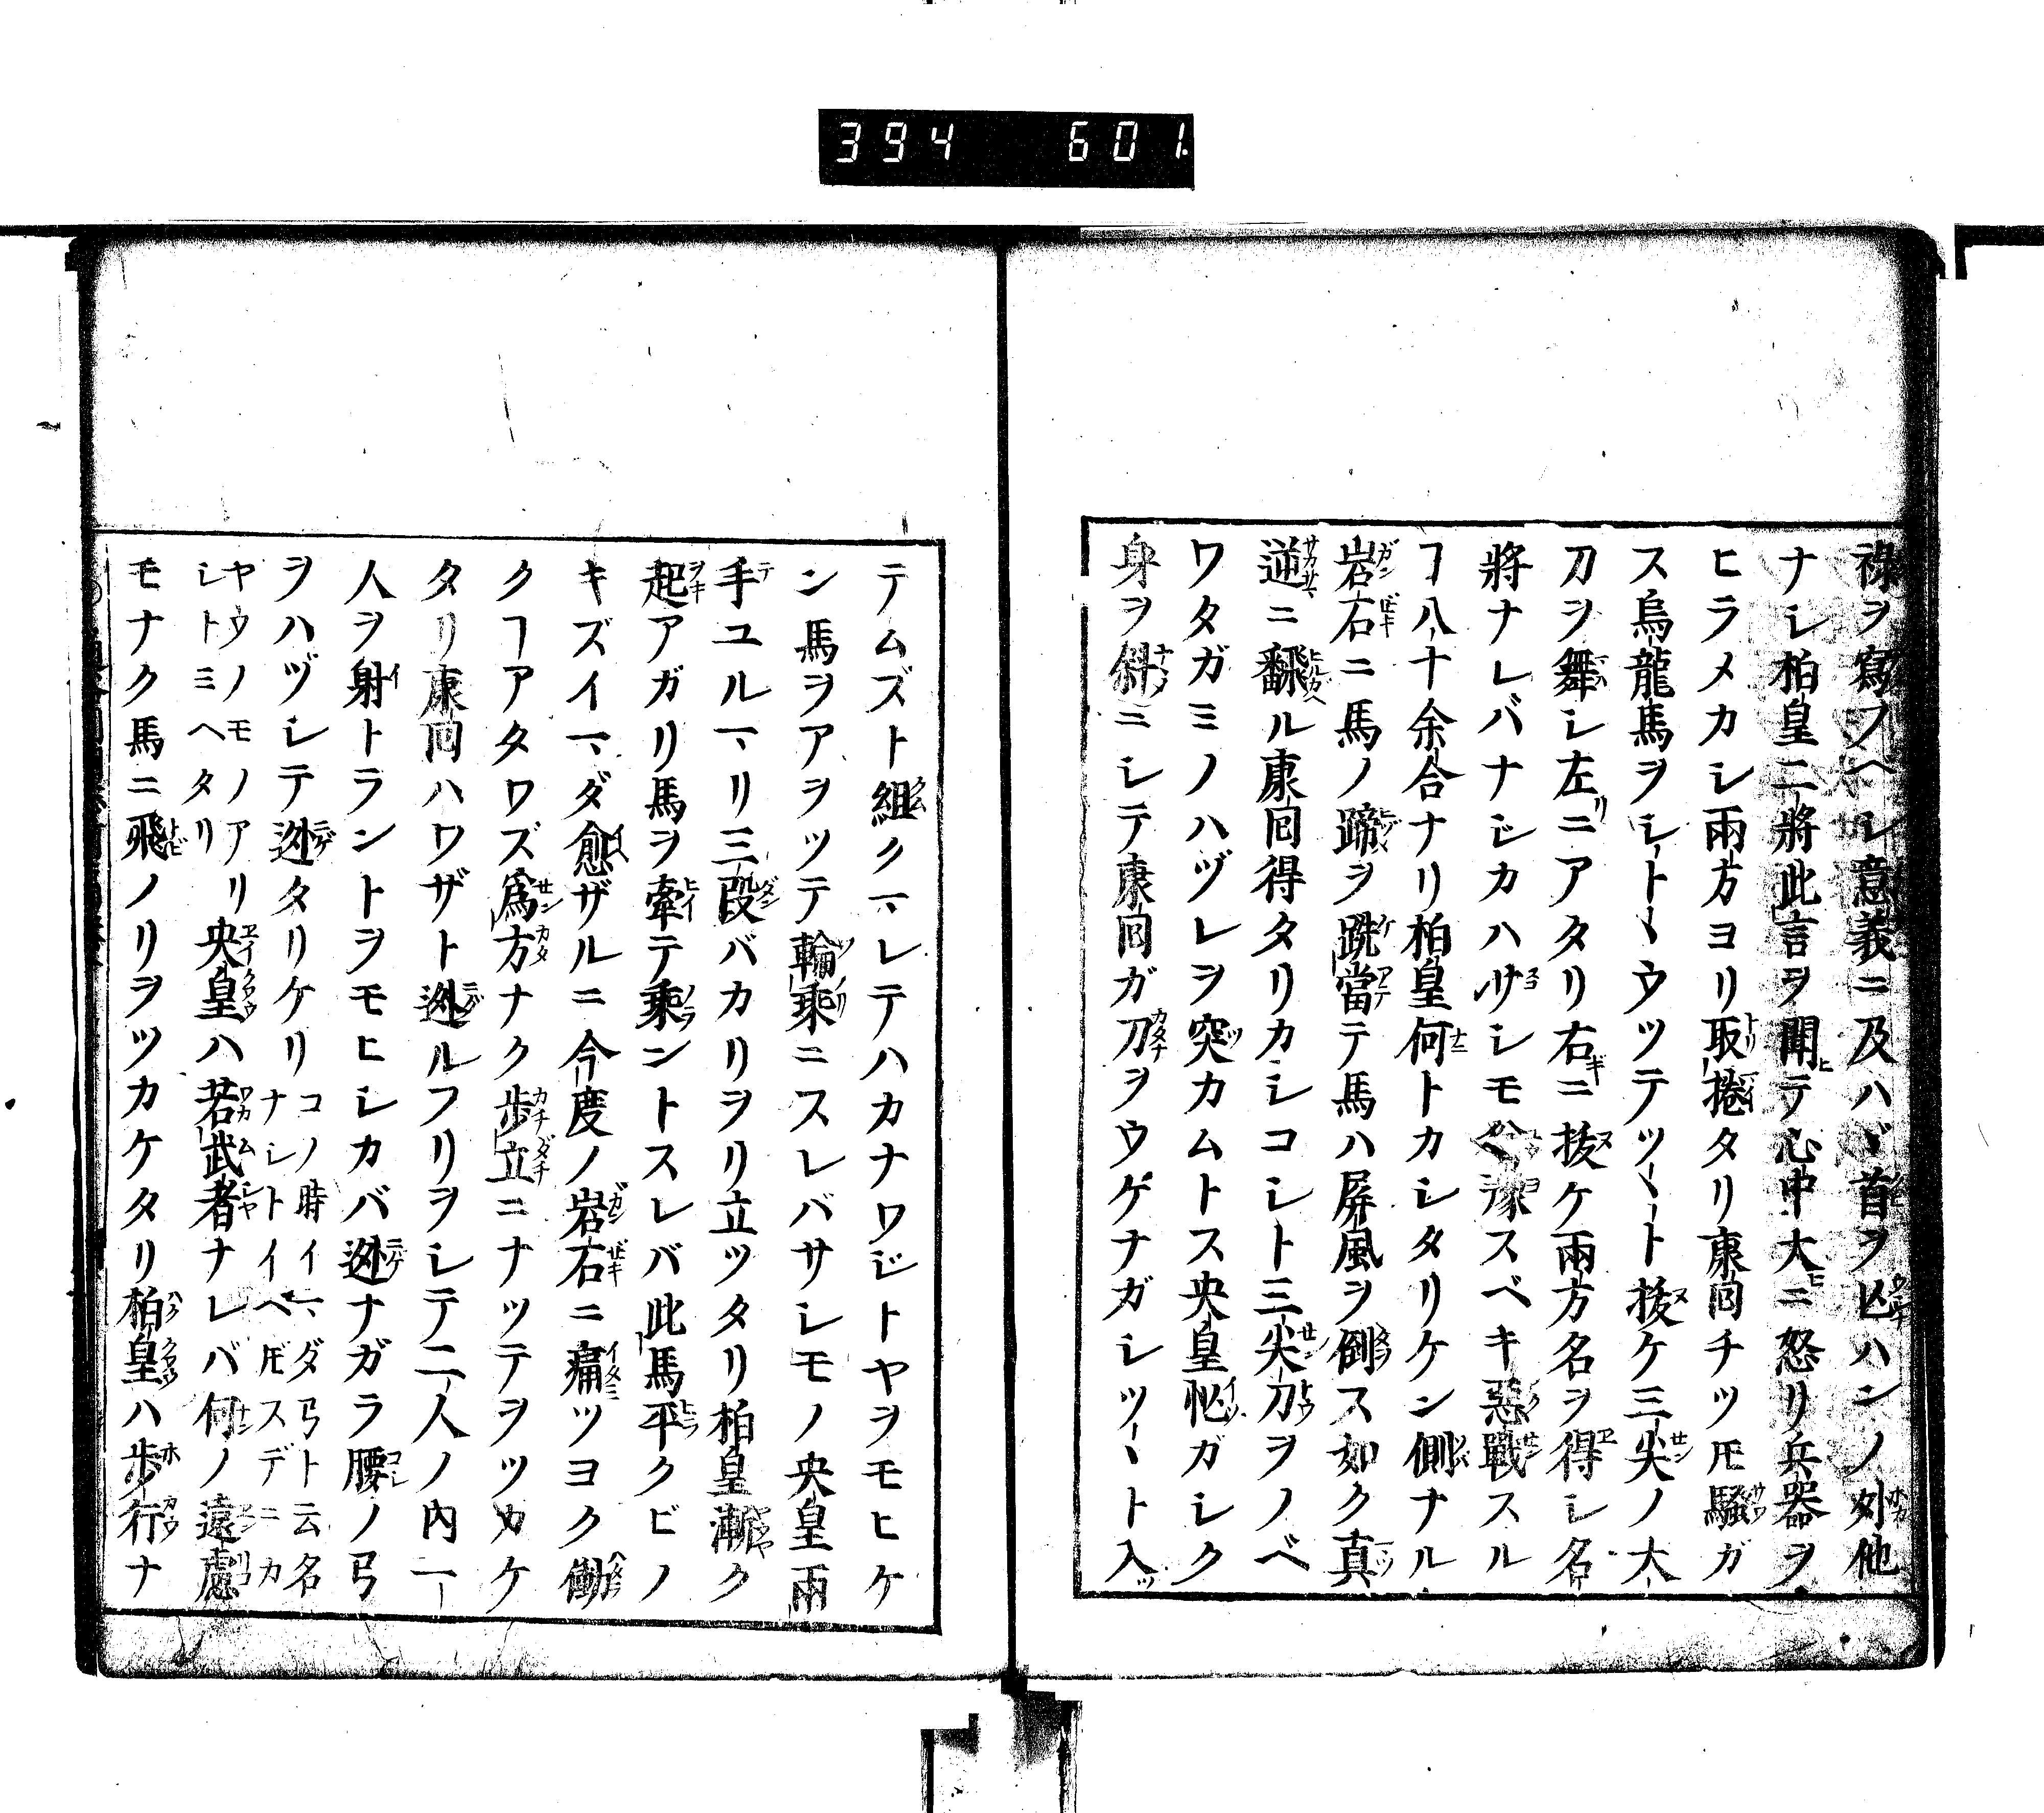 394 601
祿ヲ寫フヘシ意義ニ及ハヾ首ヲ亾ハンノ外他
ナシ柏皇二將此言ヲ聞テ心中大ニ怒リ兵器ヲ
ヒラメカシ兩方ヨリ取捲タリ康囘チツ𪜈騷ガ
ス烏龍馬ヲシト〱ウツテツヽト拔ケ三尖ノ大
刀ヲ舞シ左ニアタリ右ニ拔ケ兩方名ヲ得シ名
將ナレバナシカハサシモ スベキ惡戰スル
ヿ八十余合ナリ柏皇何トカシタリケン側ナル
岩石ニ馬ノ蹄ヲ跣當テ馬ハ屏風ヲ倒ス如ク真
逆ニ翻ル康囘得タリカシコシト三尖刀ヲノベ
ワタガミノハヅレヲ突カムトス央皇忙ガシク
身ヲ斜ニシテ康囘ガ刀ヲウケナガシツヽト入
テムズト組クマレテハカナワジトヤヲモヒケ
ン馬ヲアヲツテ輪乘ニスレバサシモノ央皇兩
手ユルマリ三段バカリヲリ立ツタリ柏皇漸ク
起アガリ馬ヲ牽テ乘ントスレバ此馬平クビノ
キズイマダ愈ザルニ今度ノ岩石ニ痛ツヨク働
クヿアタワズ爲方ナク歩立ニナツテヲツカケ
タリ康囘ハワザト迯ルフリヲシテ二人ノ内一
人ヲ射トラントヲモヒシカバ迯ナガラ腰ノ弓
ヲハヅシテ迯タリケリ コノ時イマダ弓ト云名
ナシトイヘ𪜈スデニカ
ヤウノモノアリ
シトミヘタリ 央皇ハ若武者ナレバ何ノ遠慮
モナク馬ニ飛ノリヲツカケタリ柏皇ハ歩行ナ